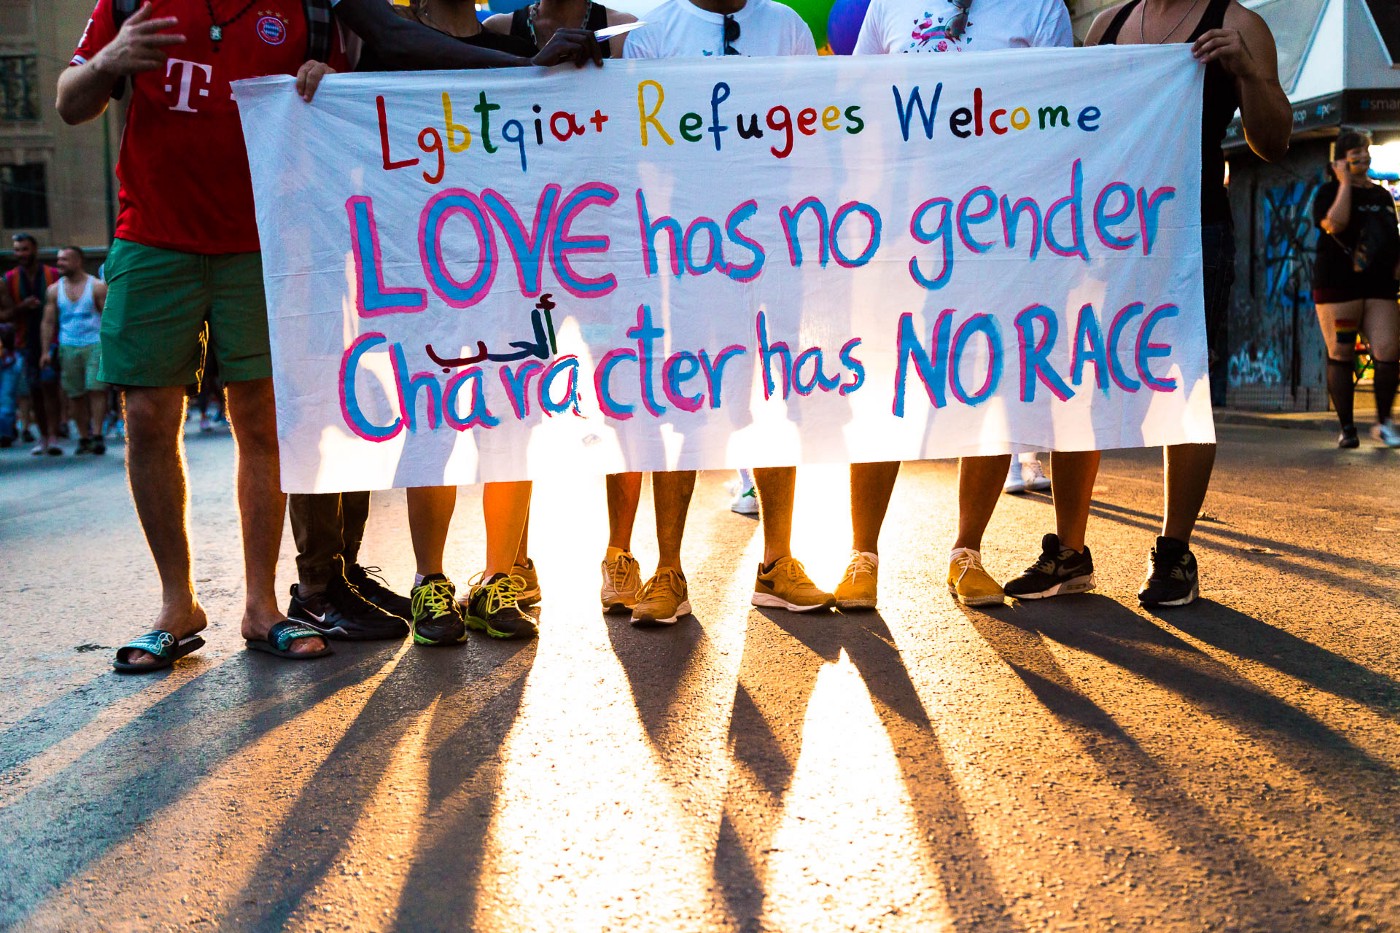 Lgbtqia+ Refugees Welcome
LOVE has no gender
ألحب
Character has NO RACE
T